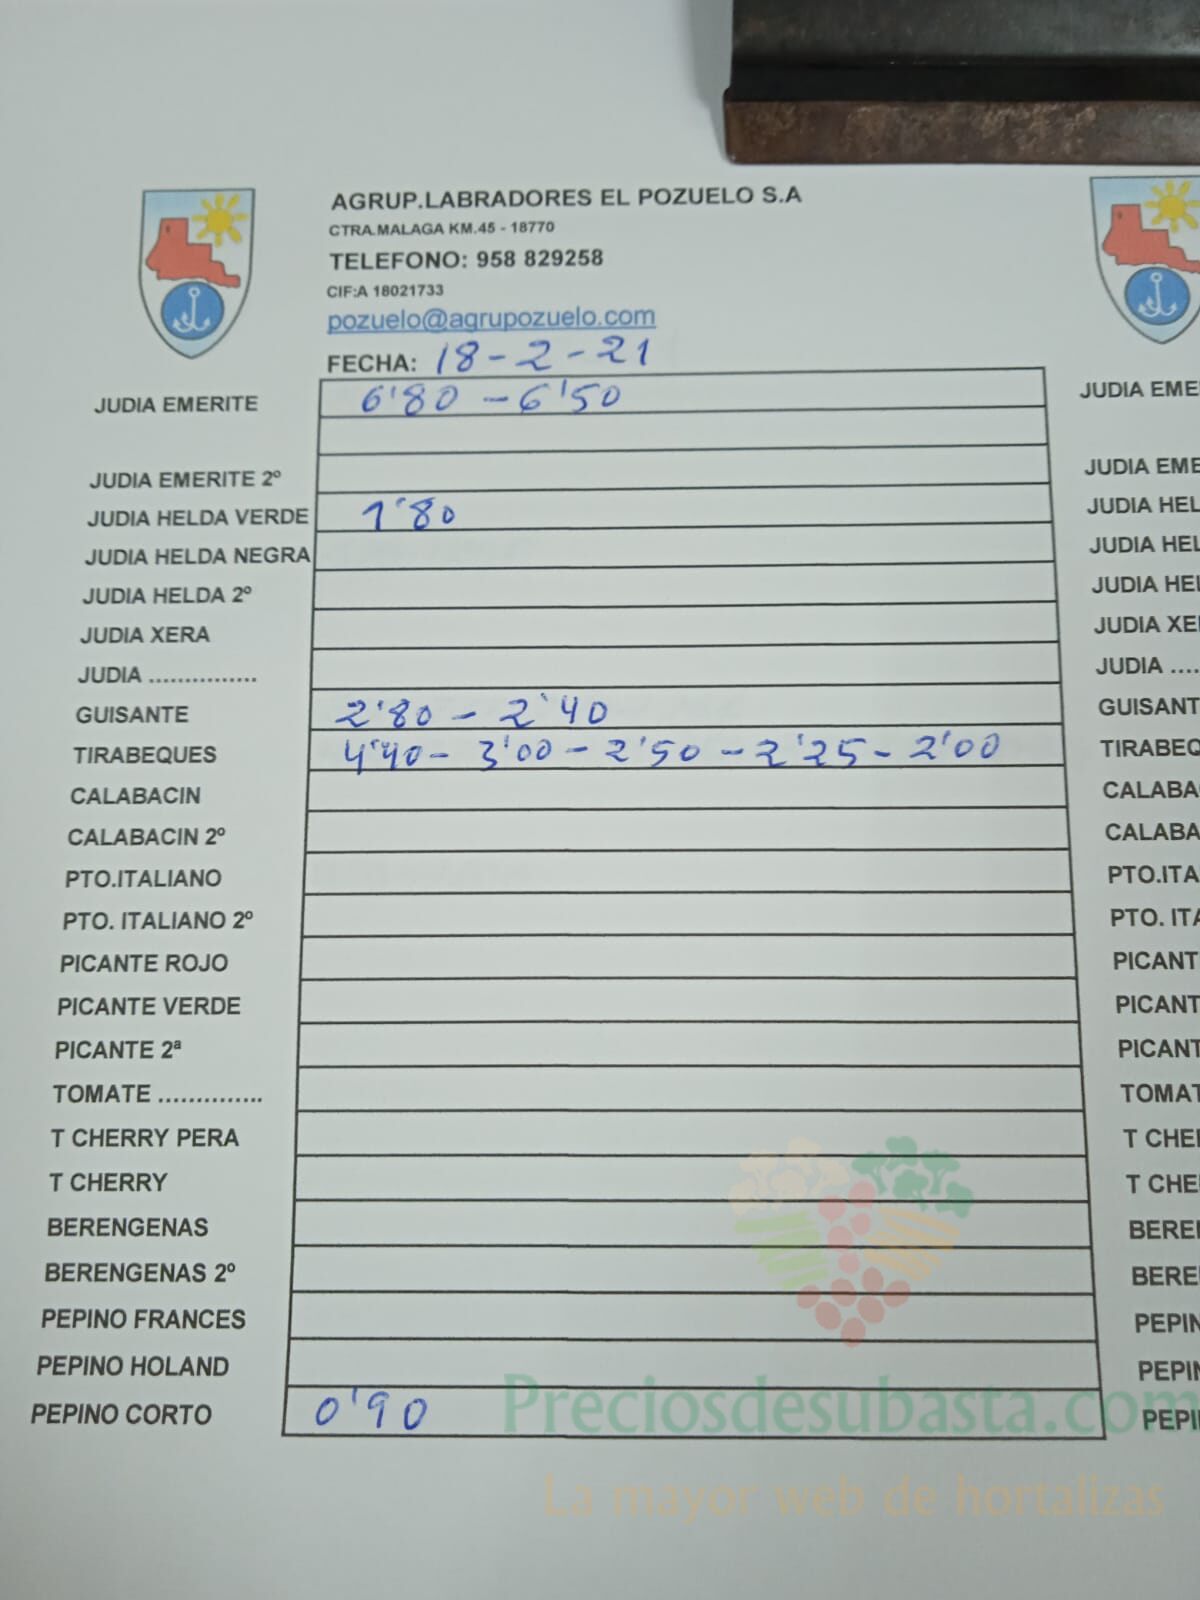 AGRUP.LABRADORES EL POZUELO S.A
CTRA.MALAGA KM.45 - 18770
TELEFONO: 958 829258
CIF:A 18021733
pozuelo@agrupozuelo.com
FECHA: 18-2-21
JUDIA EMERITE 6'80 - 6'50
JUDIA EMERITE 2º
JUDIA HELDA VERDE 1'80
JUDIA HELDA NEGRA
JUDIA HELDA 2º
JUDIA XERA
JUDIA ...............
GUISANTE 2'80 - 2'40
TIRABEQUES 4'40 - 3'00 - 2'50 - 2'25 - 2'00
CALABACIN
CALABACIN 2º
PTO.ITALIANO
PTO. ITALIANO 2º
PICANTE ROJO
PICANTE VERDE
PICANTE 2ª
TOMATE ..............
T CHERRY PERA
T CHERRY
BERENGENAS
BERENGENAS 2º
PEPINO FRANCES
PEPINO HOLAND
PEPINO CORTO 0'90
JUDIA EME
JUDIA EME
JUDIA HEL
JUDIA HEL
JUDIA HEL
JUDIA XE
JUDIA ....
GUISANT
TIRABEQ
CALABA
CALABA
PTO.ITA
PTO. ITA
PICANT
PICANT
PICANT
TOMAT
T CHE
T CHE
BERE
BERE
PEPIN
PEPI
PEPI
Preciosdesubasta.com
La mayor web de hortalizas